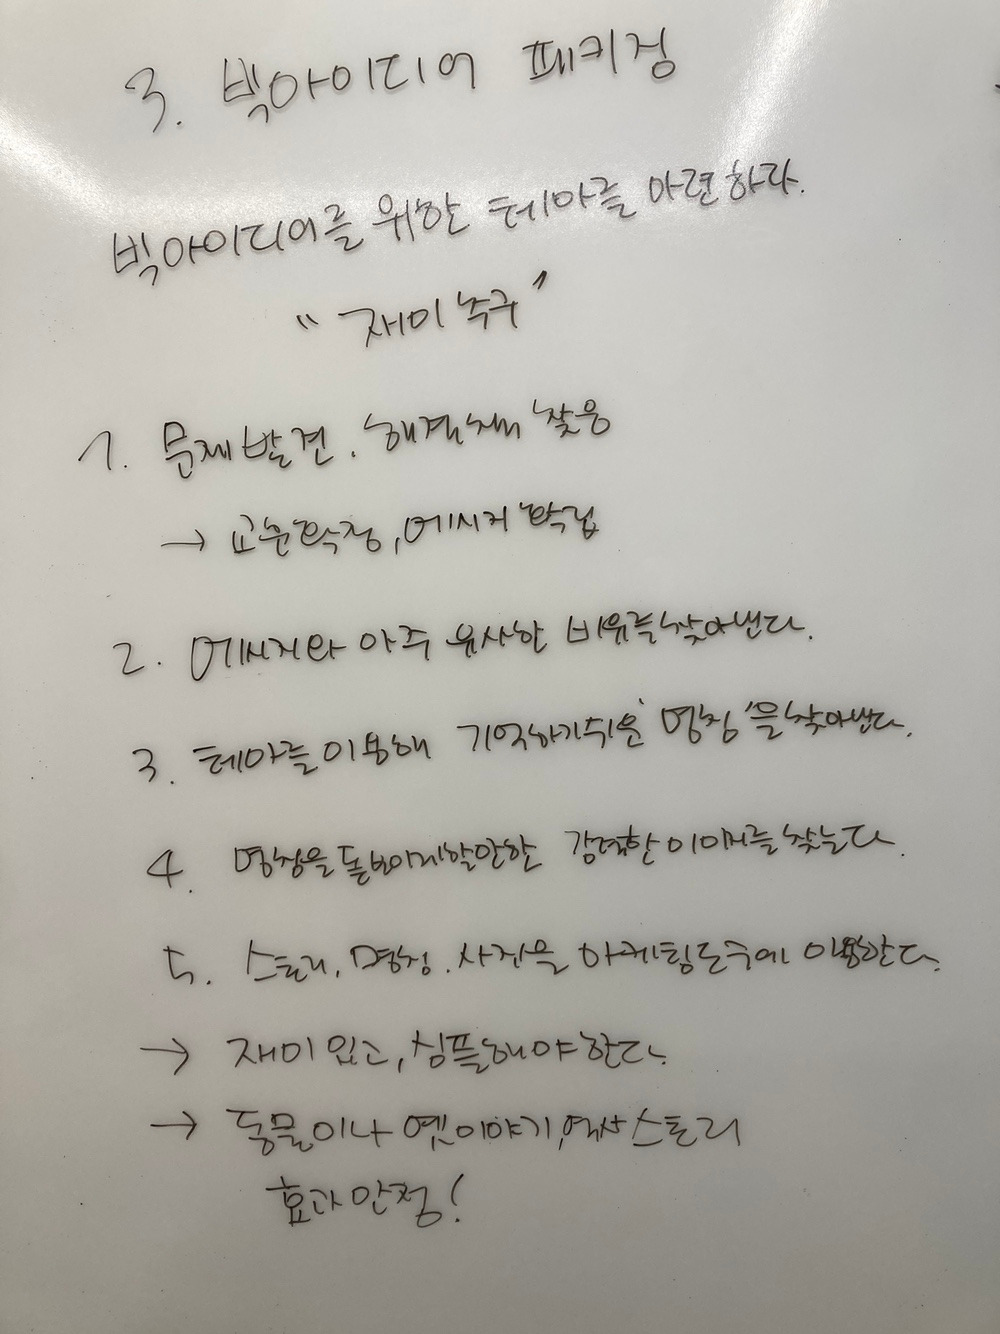 3. 빅아이디어 패키징
빅아이디어를 위한 테마를 마련하라.
"재미 추구"
1. 문제발견. 해결책 찾음
→ 교훈확정, 메시지 확립
2. 메시지와 아주 유사한 비유를 찾아낸다.
3. 테마를 이용해 기억하기쉬운 '명칭'을 찾아낸다.
4. 명칭을 돋보이게할만한 강력한 이미지를 찾는다.
5. 스토리, 명칭, 사진을 마케팅도구에 이용한다.
→ 재미있고, 심플해야한다.
→ 동물이나 옛이야기, 역사 스토리
효과만점!